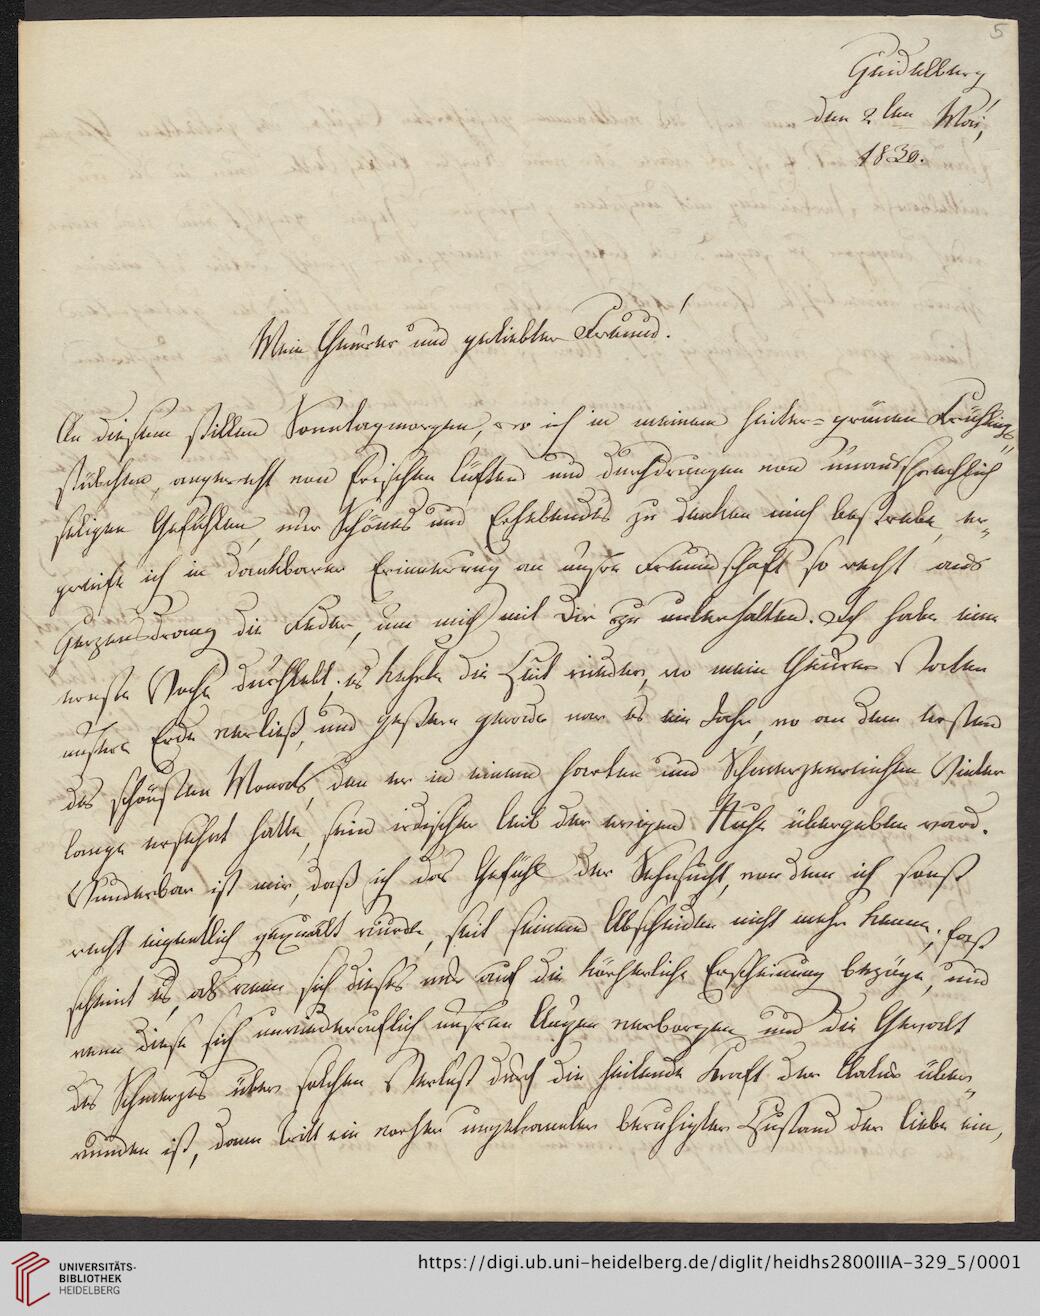 5
Heidelberg
den 2ten Mai,
1830.
Mein theurer und geliebter Freund!
An diesem stillen Sonntagmorgen, wo ich in meinem heiter-grünen Frühlings-
stübchen, angeweht von frischen Lüften und durchdrungen von unaussprechlich
seligen Gefühlen, nur Schönes und Erhebendes zu denken mich bestrebe, er-
greife ich in dankbarer Erinnerung an unsre Freundschaft so recht aus
Herzensdrang die Feder, um mich mit Dir zu unterhalten. Ich habe eine
ernste Woche durchlebt; es kehrte die Zeit wieder, wo mein theurer Vater
unsere Erde verließ, und gestern gerade war es ein Jahr, wo an dem ersten
des schönsten Monats, den er in einem harten und schmerzenreichen Winter
lange ersehnt hatte, sein irdischer Leib der ewigen Ruhe übergeben ward.
Wunderbar ist mir, daß ich das Gefühl der Sehnsucht, von dem ich sonst
recht eigentlich gequält wurde, seit seinem Abscheiden nicht mehr kenne; fast
scheint es, als wenn sich dieses nur auf die körperliche Erscheinung bezöge, und
wenn diese sich unwiderruflich unsren Augen verborgen und die Gewalt
des Schmerzes über solchen Verlust durch die heilende Kraft der Natur über-
wunden ist, dann tritt ein vorher ungekannter beruhigter Zustand der Liebe ein,
UNIVERSITÄTS-
BIBLIOTHEK
HEIDELBERG
https://digi.ub.uni-heidelberg.de/diglit/heidhs2800IIIA-329_5/0001